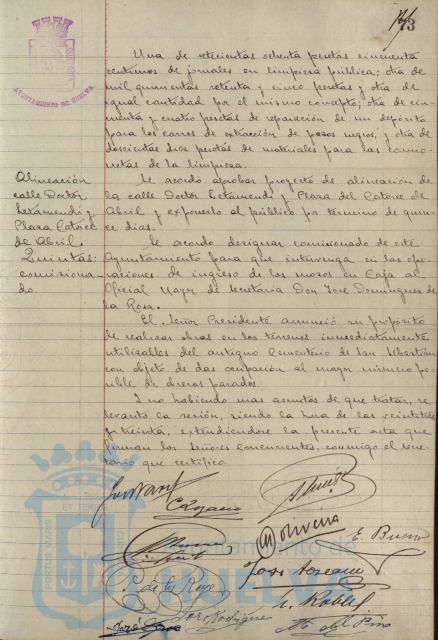 73
Una de setecientas ochenta pesetas cincuenta
centimos de jornales en limpieza pública; otra de
mil quinientas setenta y cinco pesetas y otra de
igual cantidad por el mismo concepto; otra de cin-
cuenta y cuatro pesetas de reparación de un depósito
para los carros de extracción de pozos negros, y otra de
doscientas doce pesetas de materiales para las camio-
netas de la limpieza.
Alineación
calle Doctor
Letamendi y
Plaza Catorce
de Abril.
Se acordó aprobar proyecto de alineación de
la calle Doctor Letamendi y Plaza del Catorce de
Abril y exponerlo al público por termino de quin-
ce días.
Quintas:
comisiona-
do.
Se acordó designar comisionado de este
Ayuntamiento para que intervenga en las ope-
raciones de ingreso de los mozos en Caja al
Oficial Mayor de Secretaria Don José Domínguez de
la Rosa.
El Señor Presidente anunció su propósito
de realizar obras en los terrenos inmediatamente
utilizables del antiguo Cementerio de San Sebastián
con objeto de dar ocupación al mayor número po-
sible de obreros parados.
Y no habiendo mas asuntos de que tratar, se
levantó la sesión, siendo la hora de las veintitres
y treinta, extendiendose la presente acta que
firman los Señores concurrentes, conmigo el secre-
tario que certifico.
AYUNTAMIENTO DE HUELVA
E. Bueno
José Rodríguez
Ayuntamiento de
HUELVA